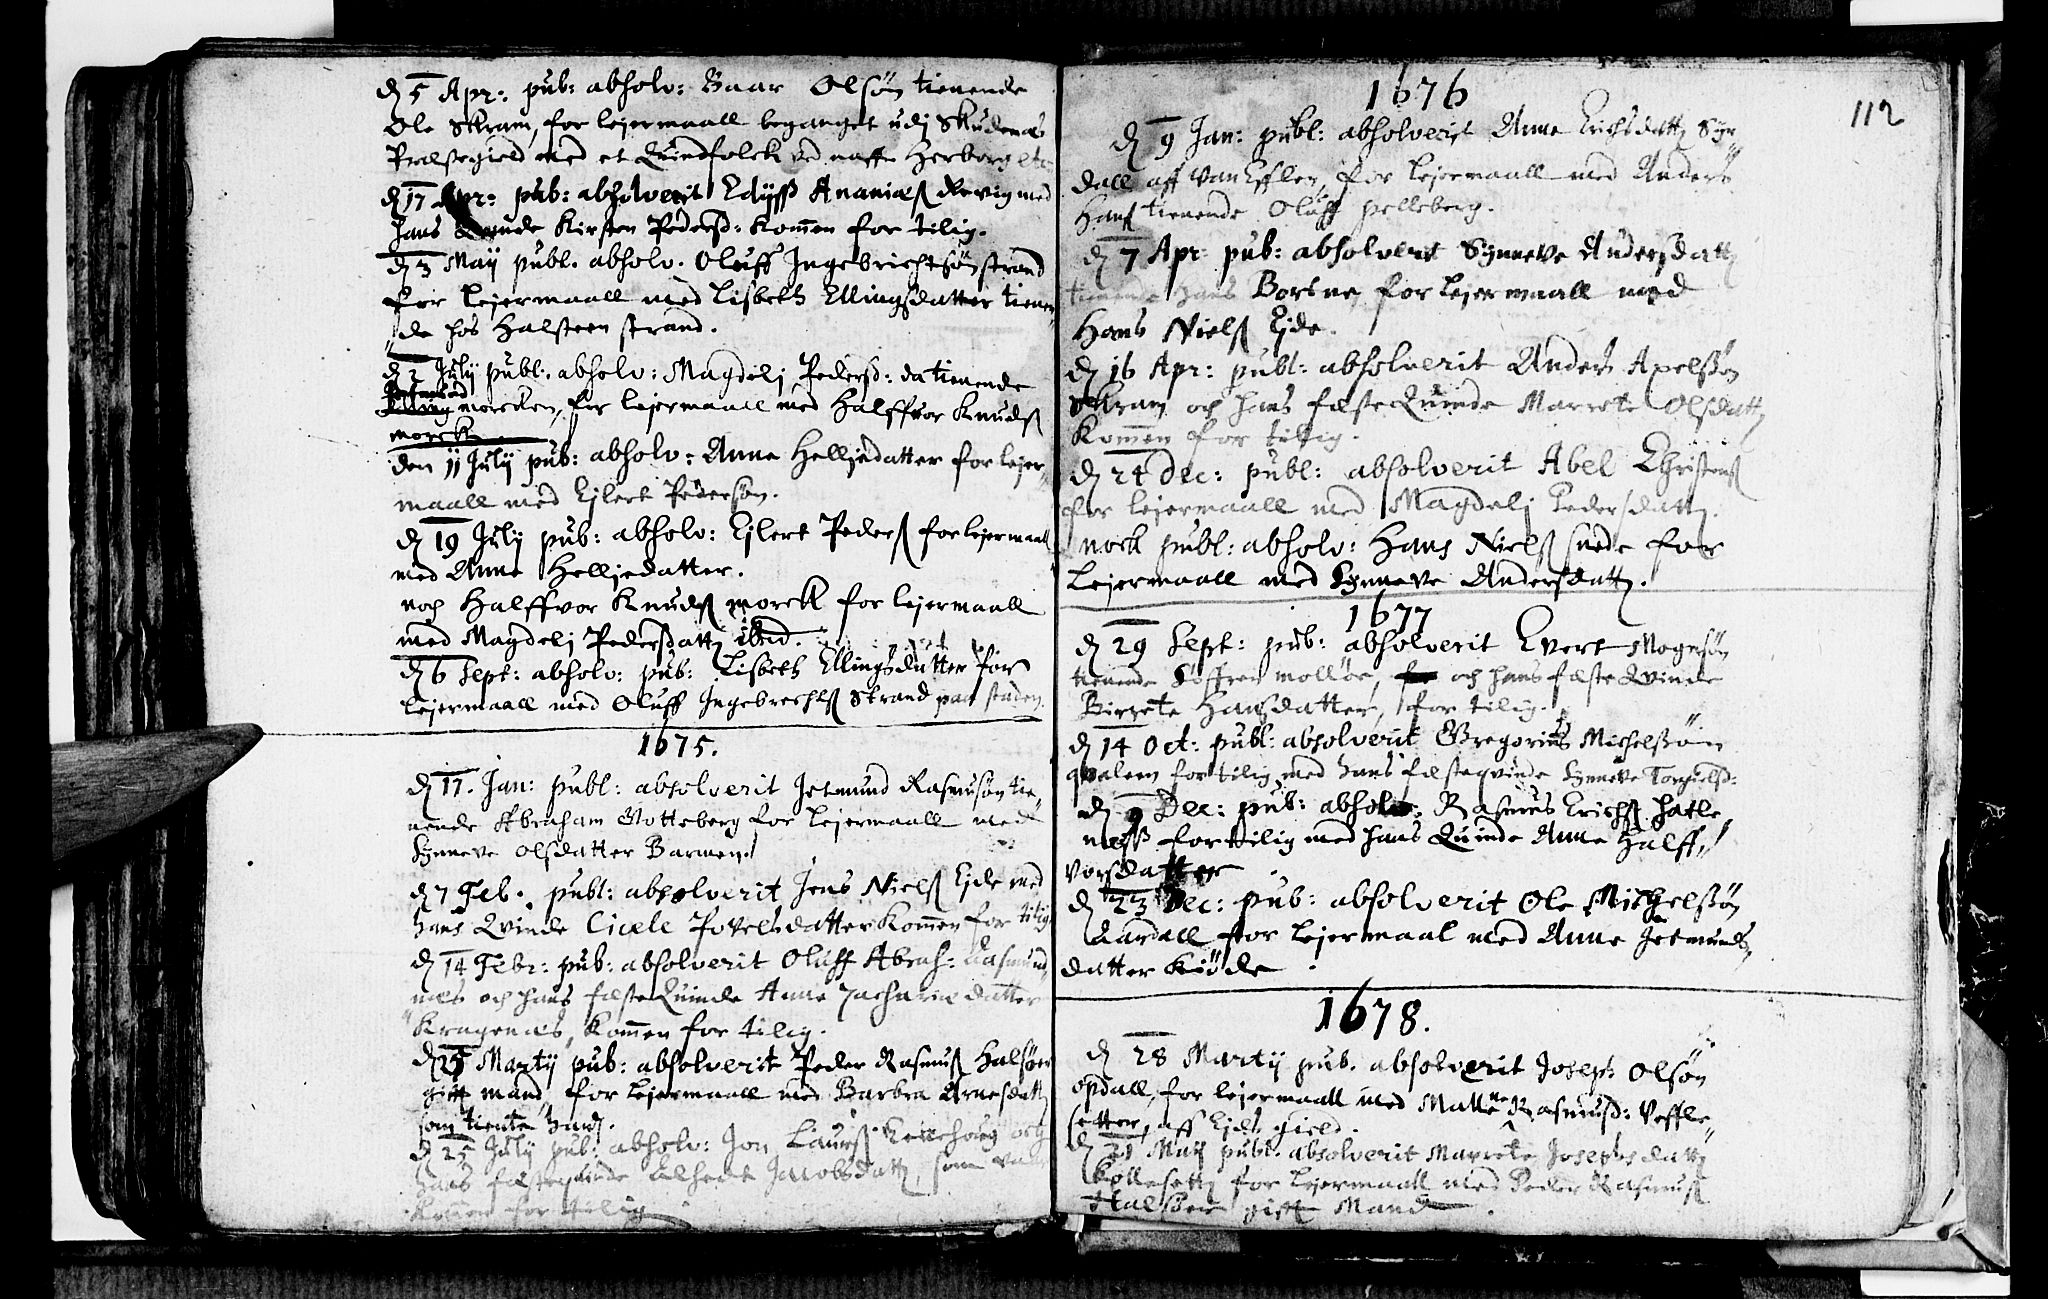 d 5 Apr: pub: absolv: Baar Olsøn tienende
Ole Skram, for lejermaall beganget udj Skudenæs
Præstegield med et Quindfolck ved naffn Herborg etc
d 17 Apr: pub: absolverit Edijsß Ananiæs Revig med
hans Quinde Kirsten Pedersd: Kommen for tilig.
d 3 Maij publ. absolv. Oluff Ingebrichtsøn strand
for lejermaall med Lisbeth Ellingsdatter tienen
de hos Halsteen strand.
d 2 Julij publ. absolv: Magdelj Pedersd: da tienende
morcken, for lejermaall med Halffvor Knuds
morck
den 11 Julij pub: absolv: Anne Helljedatter for lejer
maall med Ejlert Pedersøn.
d 19 Julij pub: absolv: Ejlert Peders for lejermaal
med Anne Helljedatter.
noch Halffvor Knuds morck for lejermaall
med Magdelj Pedersdatt ibid.
d 6 Sept: absolv: pub: Lisbeth Ellingsdatter for
lejermaall med Oluff Ingebrechts Strand paa staden.
1675.
d 17. Jan: publ: absolverit Jetmund Rasmusøn tie
nende Abraham Gotteberg for lejermaall med
Synneve Olsdatter Barmen.
d 7 Feb. publ: absolverit Jens Niels Ejde med
hans Qvinde Cicele Povelsdatter Kommen for tilig
d 14 Febr: pub: absolverit Oluff Abrah: Aasmund
næs och hans fæste Quinde Anne Zachariædatter
Kragenæs, Kommen for tilig.
d 25 Martij pub: absolverit Peder Rasmus Halsøer
gift mand, for lejermaall med Barbra Arnesdatt
som tiente hands.
d 25 Julij pub: absolv: Jon Laurs och
hans fæstequinde Alhedt Jacobsdatt, som var
Kommen for tilig
112
1676
d 9 Jan: publ: absolverit Anne Erichsdatt Syr
dall aff Vanelfflen, for lejermaall med Anders
Hans tienende Oluff pelleberg.
d 7 Apr: pub: absolverit Synneve Andersdatt
tienende hans Borsne for lejermaall med
Hans Niels Ejde.
d 16 Apr: publ: absolverit Anders Axelsøn
Skram och hans fæste Quinde Marrete Olsdatt
Kommen for tilig.
d 24 Dec: publ: absolverit Abel Christens
for lejermaall med Magdelj Pedersdatt.
nock publ: absolv: Hans Niels for
lejermaall med Synneve Andersdatt.
1677
d 29 Sept: pub: absolverit Evert Mognsøn
tienende Søffren molløe, och hans fæste Qvinde
Birgete Hansdatter, for tilig.
d 14 Oct: publ: absolverit Gregorius Michelsøn
qvalem for tilig med hans fæsteqvinde Synneve Torgielsd:
d 9 Dec: pub: absolv: Rasmus Erichs Hatle
næß for tilig med hans Quinde Anne Halff
vorsdatter
d 23 Dec: pub: absolverit Ole Michelsøn
Aardall for lejermaal med Anne Jetmunds
datter Kiøde
1678.
d 28 Martij pub. absolverit Joseph Olsøn
opdall, for lejermaall med Mattene Rasmusd: Veffle
setter, aff Ejds gield.
d 21 Maij publ. absolverit Marrete Josephsdatt
Kollesett for lejermaall med Peder Rasmus
Halsøer gifft Mand.